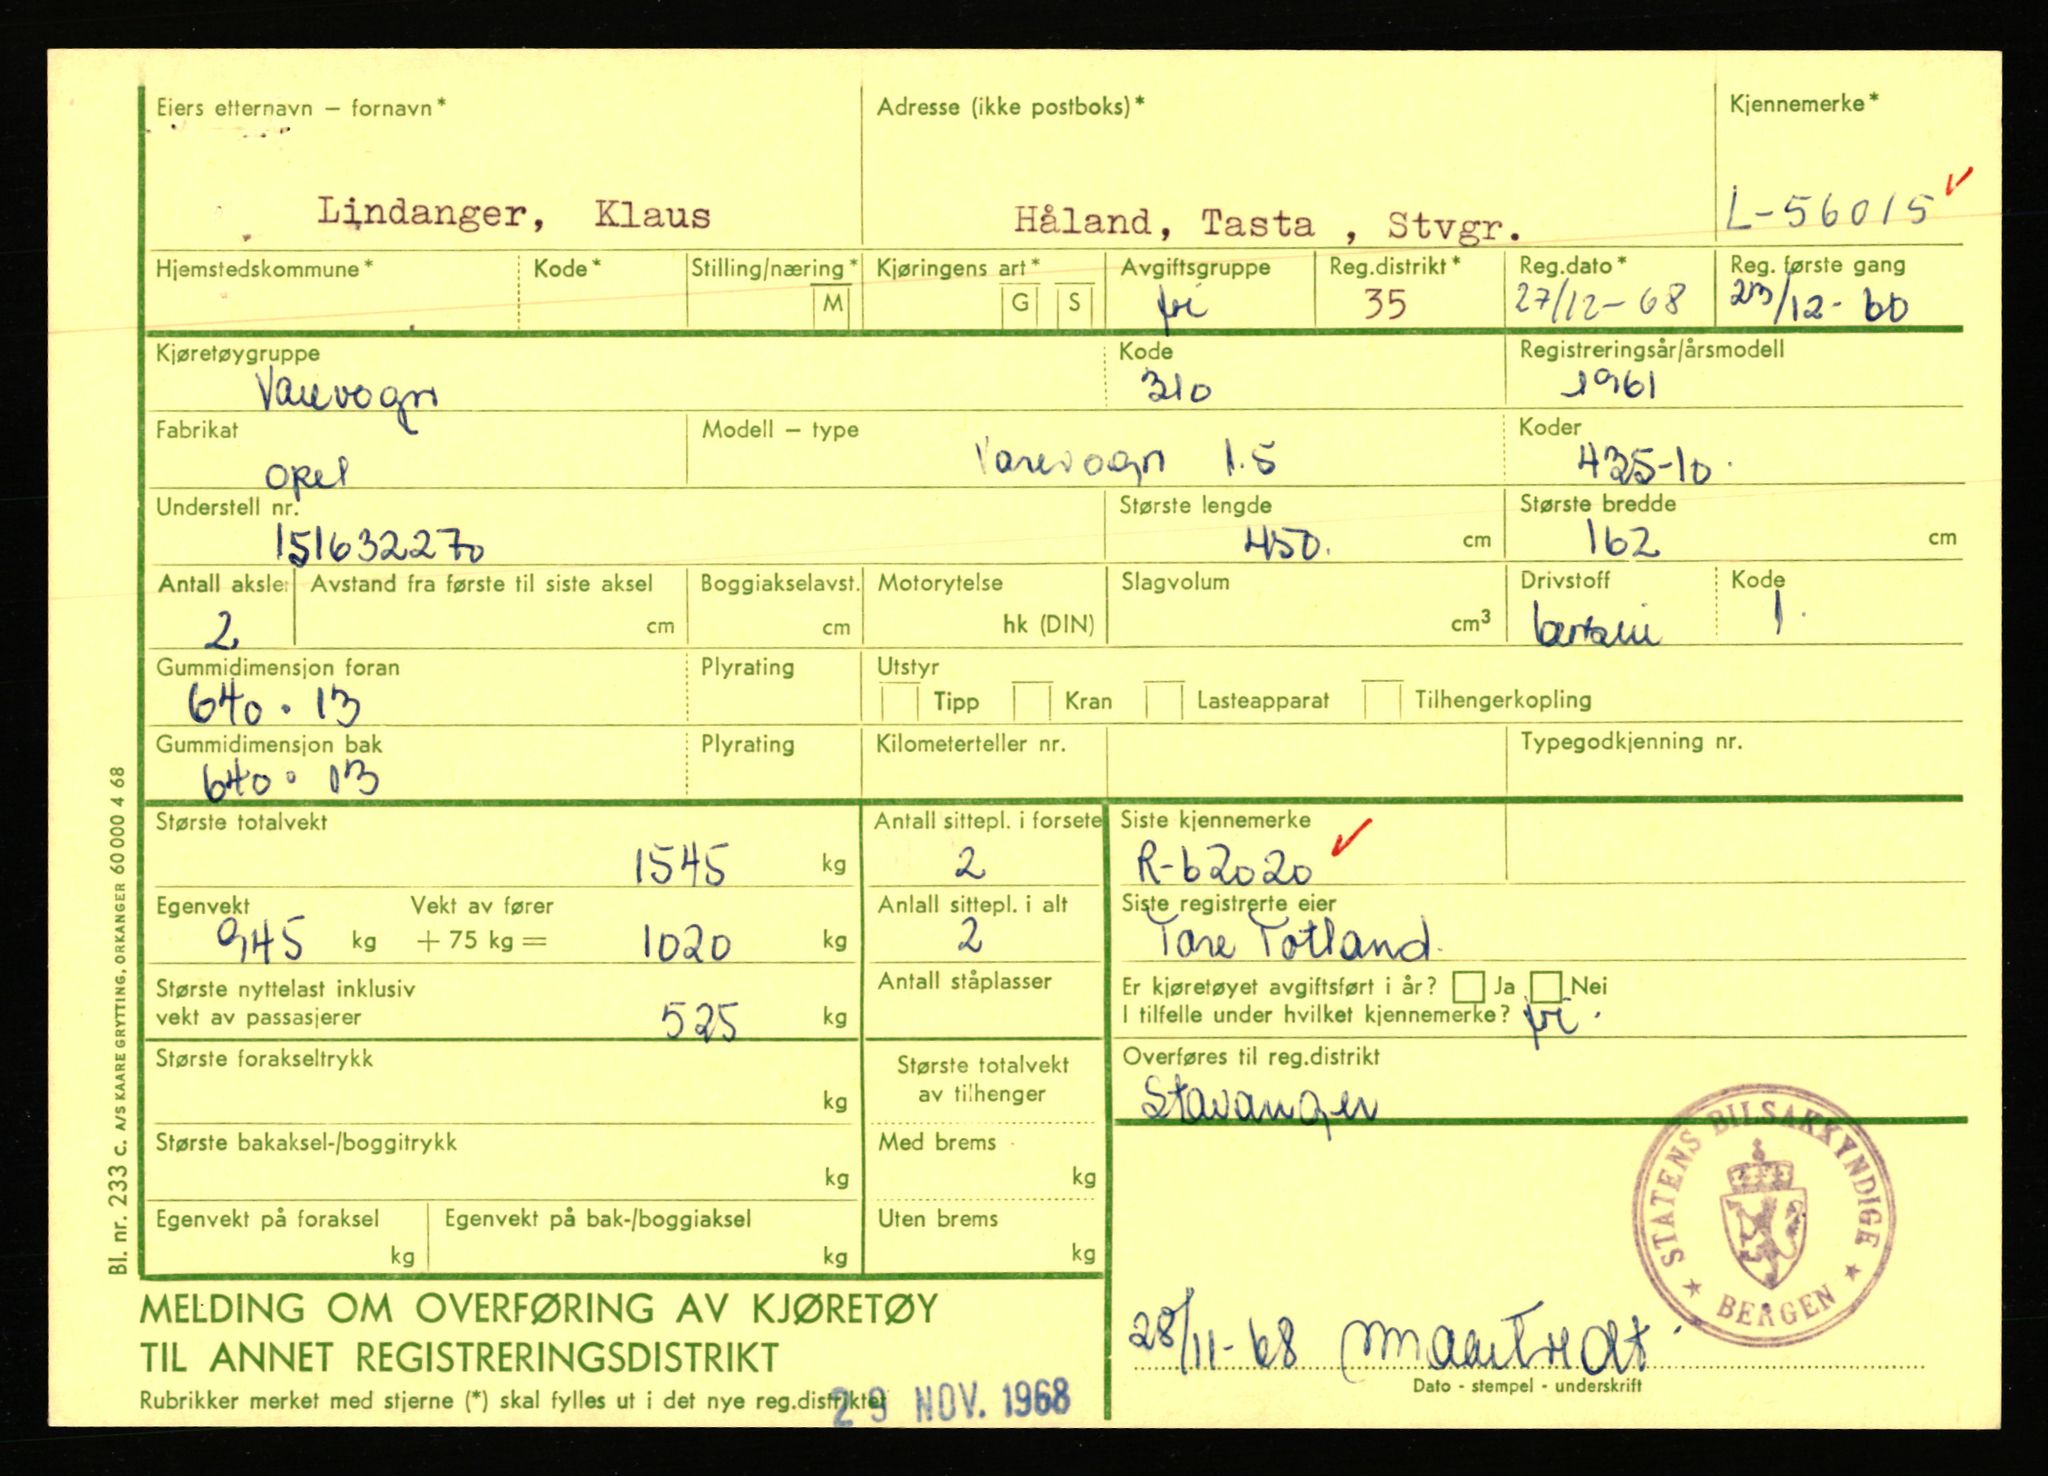 Eiers etternavn – fornavn* Adresse (ikke postboks)* Kjennemerke*
Lindanger, Klaus Håland, Tasta , Stvgr. L-56015
Hjemstedskommune* Kode* Stilling/næring* Kjøringens art* Avgiftsgruppe Reg.distrikt* Reg.dato* Reg. første gang
M G S fri 35 27/12-68 23/12-60
Kjøretøygruppe Kode Registreringsår/årsmodell
Varevogn 310 1961
Fabrikat Modell – type Koder
Opel Varevogn 1.5 435-10.
Understell nr. Største lengde Største bredde
151632270 450. cm 162 cm
Antall aksler Avstand fra første til siste aksel Boggiakselavst. Motorytelse Slagvolum Drivstoff Kode
2 cm cm hk (DIN) cm³ bensin 1.
Gummidimensjon foran Plyrating Utstyr
640 . 13 Tipp Kran Lasteapparat Tilhengerkopling
Gummidimensjon bak Plyrating Kilometerteller nr. Typegodkjenning nr.
640 . 13
Største totalvekt Antall sittepl. i forsete Siste kjennemerke
1545 kg 2 R-62020
Egenvekt Vekt av fører Anlall sittepl. i alt Siste registrerte eier
945 kg + 75 kg = 1020 kg 2 Tore Totland.
Største nyttelast inklusiv Antall ståplasser Er kjøretøyet avgiftsført i år? Ja Nei
vekt av passasjerer 525 kg I tilfelle under hvilket kjennemerke? fri.
Største forakseltrykk Største totalvekt Overføres til reg.distrikt
kg av tilhenger Stavanger
Største bakaksel-/boggitrykk Med brems
kg kg
Egenvekt på foraksel Egenvekt på bak-/boggiaksel Uten brems
kg kg kg
STATENS BILSAKKYNDIGE
BERGEN
MELDING OM OVERFØRING AV KJØRETØY
TIL ANNET REGISTRERINGSDISTRIKT
28/11-68
Dato - stempel - underskrift
Rubrikker merket med stjerne (*) skal fylles ut i det nye reg.distriktet
29 NOV. 1968
Bl. nr. 233 c. A/S KAARE GRYTTING, ORKANGER 60 000 4 68